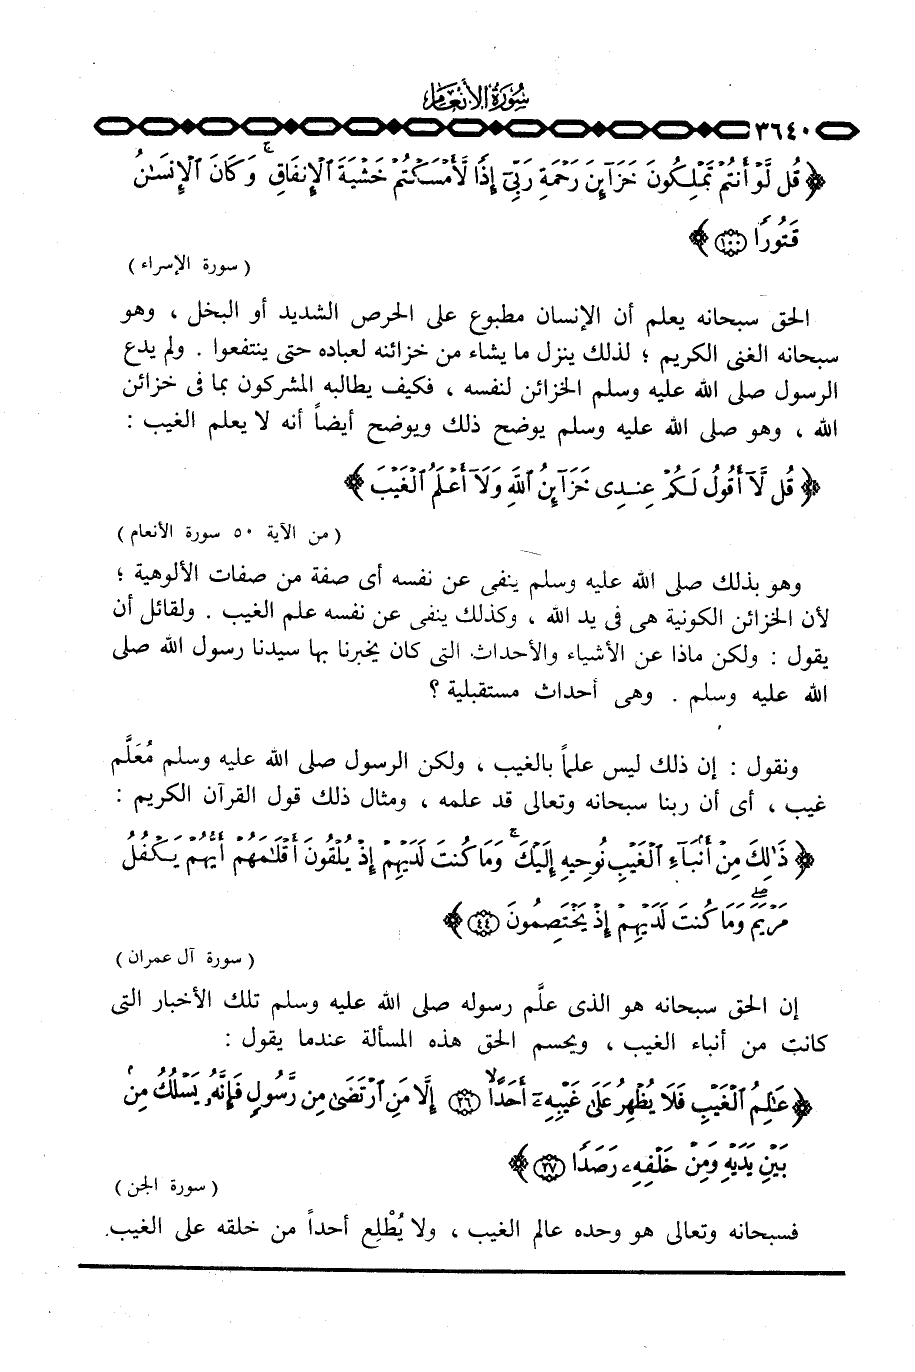 سورة الأنعام
٣٦٤٠
﴿ قُل لَّوْ أَنتُمْ تَمْلِكُونَ خَزَآئِنَ رَحْمَةِ رَبِّىٓ إِذًا لَّأَمْسَكْتُمْ خَشْيَةَ ٱلْإِنفَاقِ ۚ وَكَانَ ٱلْإِنسَـٰنُ
قَتُورًا ﴿١٠٠﴾ ﴾
( سورة الإسراء )
الحق سبحانه يعلم أن الإنسان مطبوع على الحرص الشديد أو البخل ، وهو
سبحانه الغنى الكريم ؛ لذلك ينزل ما يشاء من خزائنه لعباده حتى ينتفعوا . ولم يدع
الرسول صلى الله عليه وسلم الخزائن لنفسه ، فكيف يطالبه المشركون بما فى خزائن
الله ، وهو صلى الله عليه وسلم يوضح ذلك ويوضح أيضاً أنه لا يعلم الغيب :
﴿ قُل لَّآ أَقُولُ لَكُمْ عِندِى خَزَآئِنُ ٱللَّهِ وَلَآ أَعْلَمُ ٱلْغَيْبَ ﴾
( من الآية ٥٠ سورة الأنعام )
وهو بذلك صلى الله عليه وسلم ينفى عن نفسه أى صفة من صفات الألوهية ؛
لأن الخزائن الكونية هى فى يد الله ، وكذلك ينفى عن نفسه علم الغيب . ولقائل أن
يقول : ولكن ماذا عن الأشياء والأحداث التى كان يخبرنا بها سيدنا رسول الله صلى
الله عليه وسلم . وهى أحداث مستقبلية ؟
ونقول : إن ذلك ليس علماً بالغيب ، ولكن الرسول صلى الله عليه وسلم مُعَلَّم
غيب ، أى أن ربنا سبحانه وتعالى قد علمه ، ومثال ذلك قول القرآن الكريم :
﴿ ذَٰلِكَ مِنْ أَنۢبَآءِ ٱلْغَيْبِ نُوحِيهِ إِلَيْكَ ۚ وَمَا كُنتَ لَدَيْهِمْ إِذْ يُلْقُونَ أَقْلَـٰمَهُمْ أَيُّهُمْ يَكْفُلُ
مَرْيَمَ ۖ وَمَا كُنتَ لَدَيْهِمْ إِذْ يَخْتَصِمُونَ ﴿٤٤﴾ ﴾
( سورة آل عمران )
إن الحق سبحانه هو الذى علَّم رسوله صلى الله عليه وسلم تلك الأخبار التى
كانت من أنباء الغيب ، ويحسم الحق هذه المسألة عندما يقول :
﴿ عَـٰلِمُ ٱلْغَيْبِ فَلَا يُظْهِرُ عَلَىٰ غَيْبِهِۦٓ أَحَدًا ۙ ﴿٢٦﴾ إِلَّا مَنِ ٱرْتَضَىٰ مِن رَّسُولٍ فَإِنَّهُۥ يَسْلُكُ مِنۢ
بَيْنِ يَدَيْهِ وَمِنْ خَلْفِهِۦ رَصَدًا ﴿٢٧﴾ ﴾
( سورة الجن )
فسبحانه وتعالى هو وحده عالم الغيب ، ولا يُطْلِع أحداً من خلقه على الغيب .